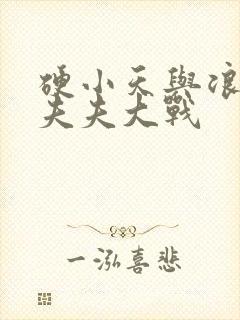 硬小天與浪
夫夫大戰
一泓喜悲